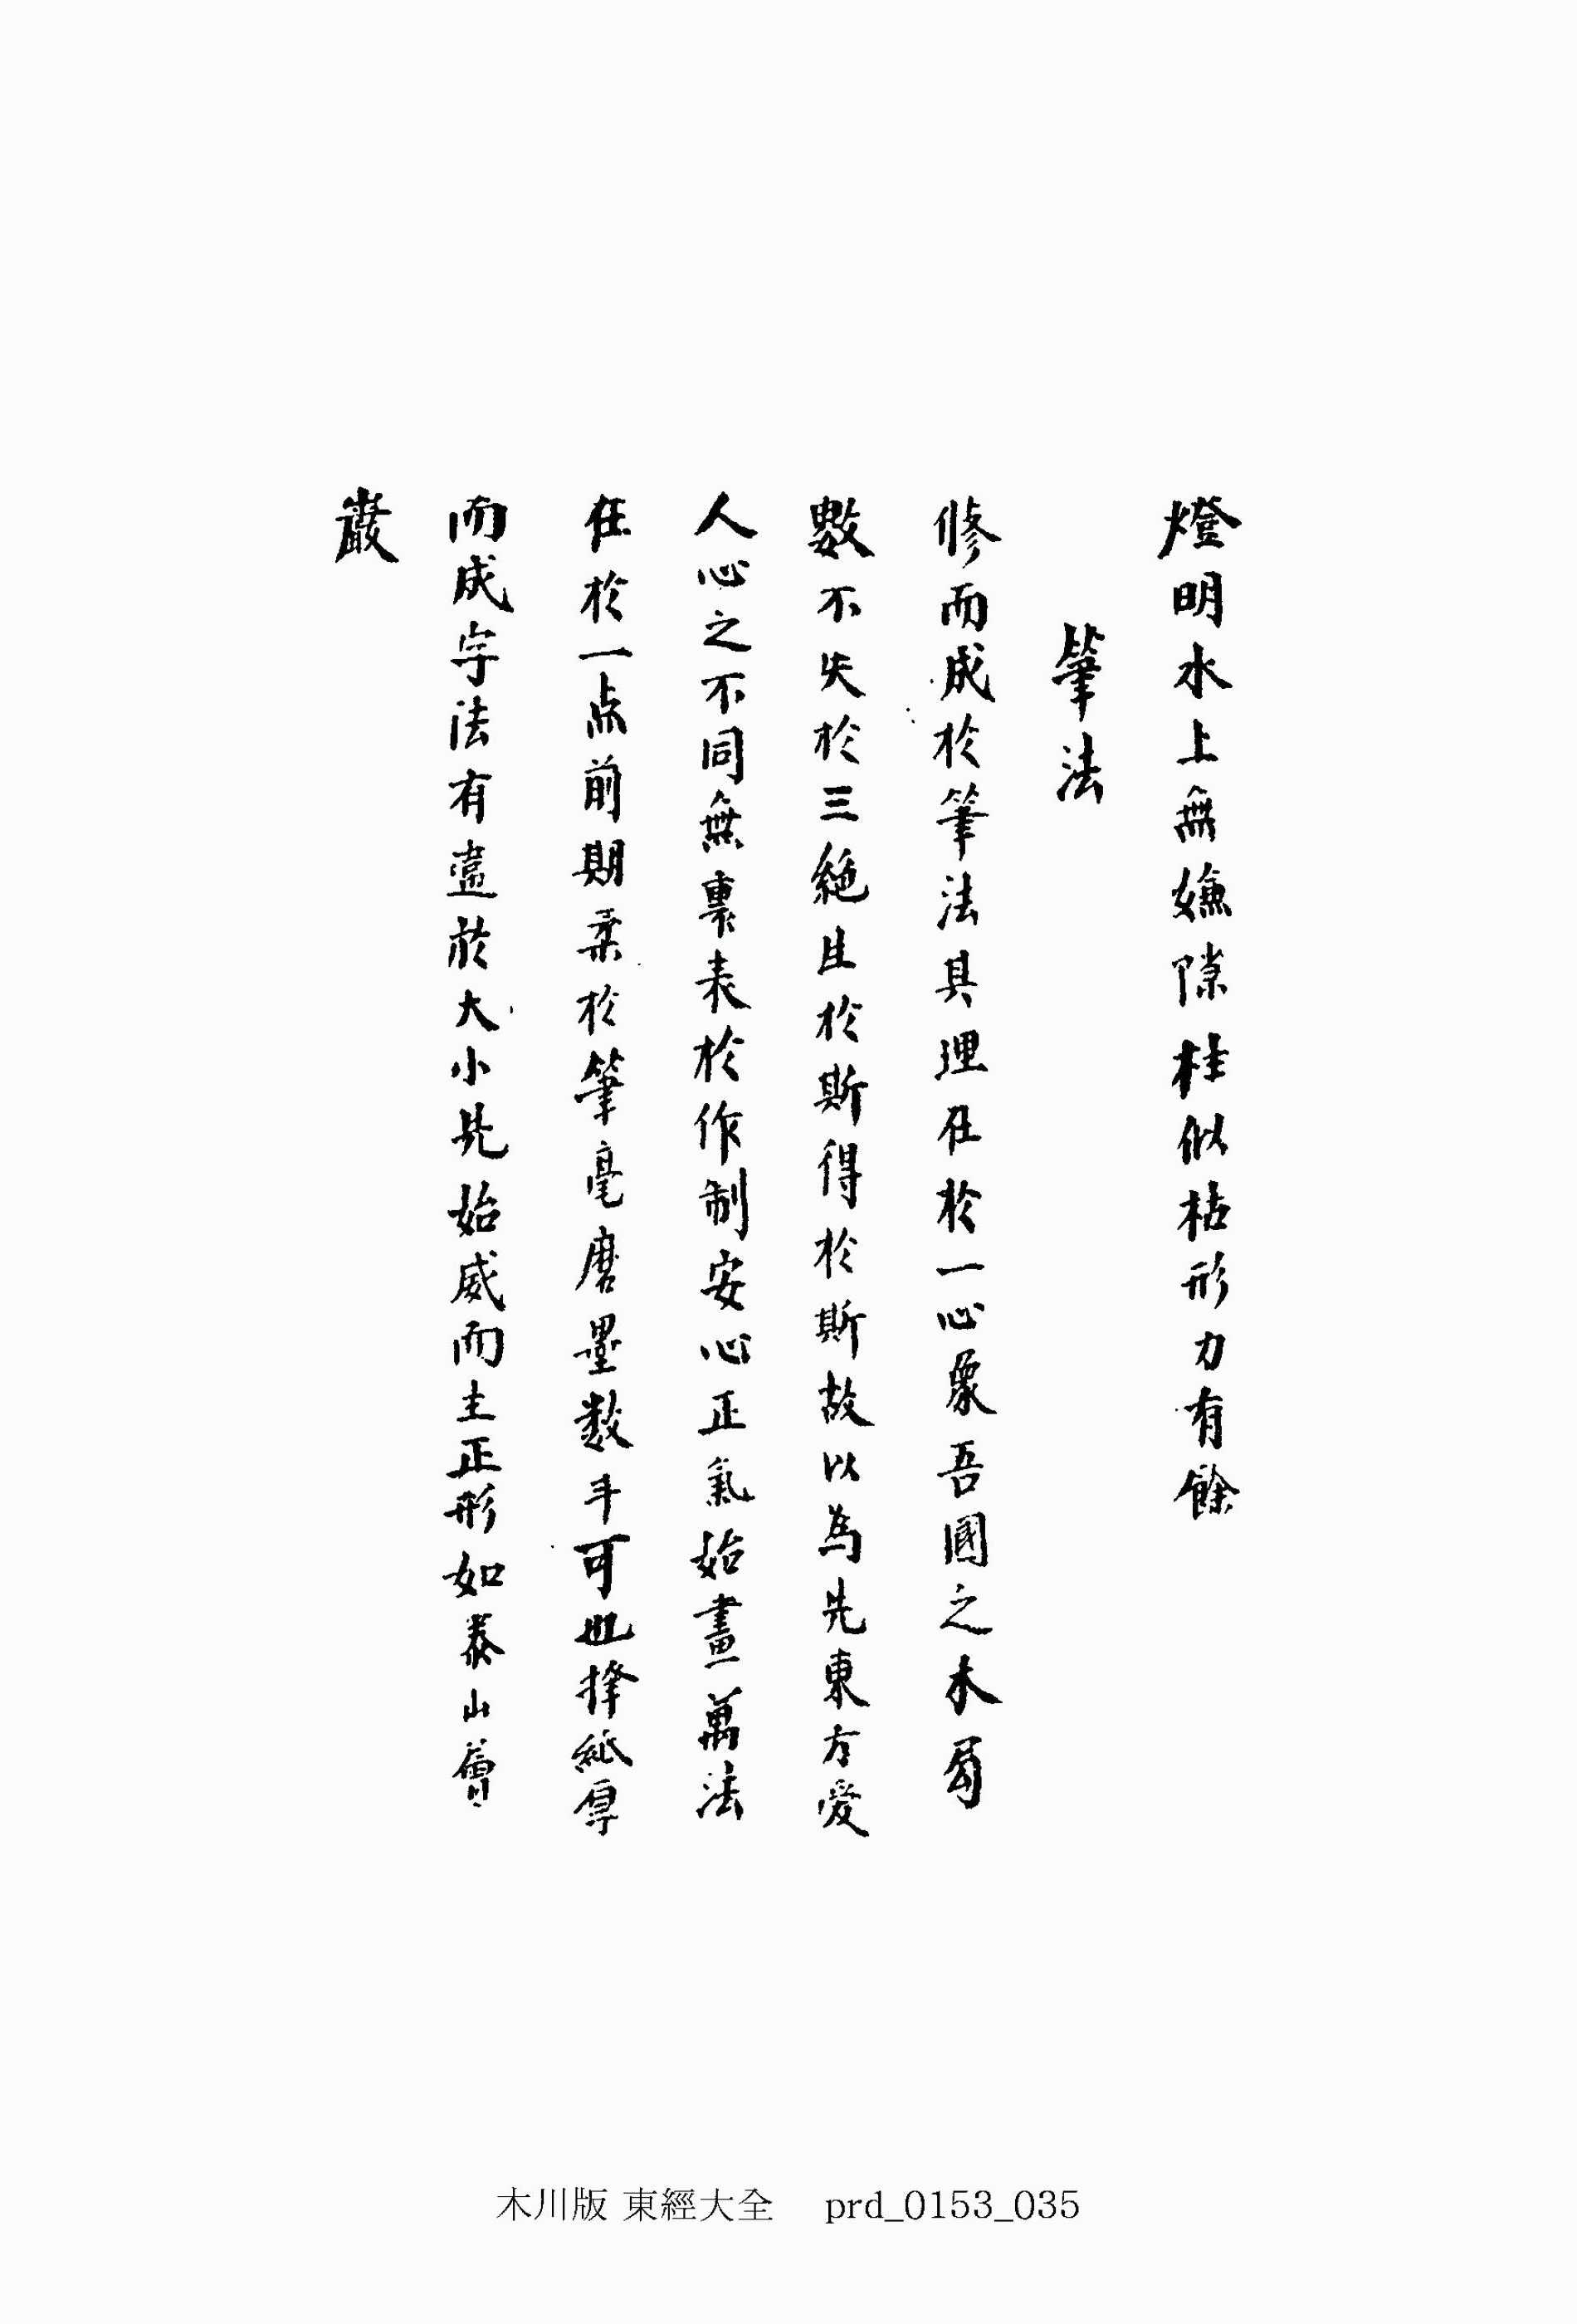 燈明水上無嫌隙柱似枯形力有餘
筆法
修而成於筆法其理在於一心象吾國之木局
數不失於三絶生於斯得於斯故以為先東方愛
人心之不同無裏表於作制安心正氣始畫萬法
在於一点前期柔於筆毫磨墨数斗可也擇紙厚
而成字法有違於大小先始威而主正形如泰山層
巖
木川版 東經大全 prd_0153_035